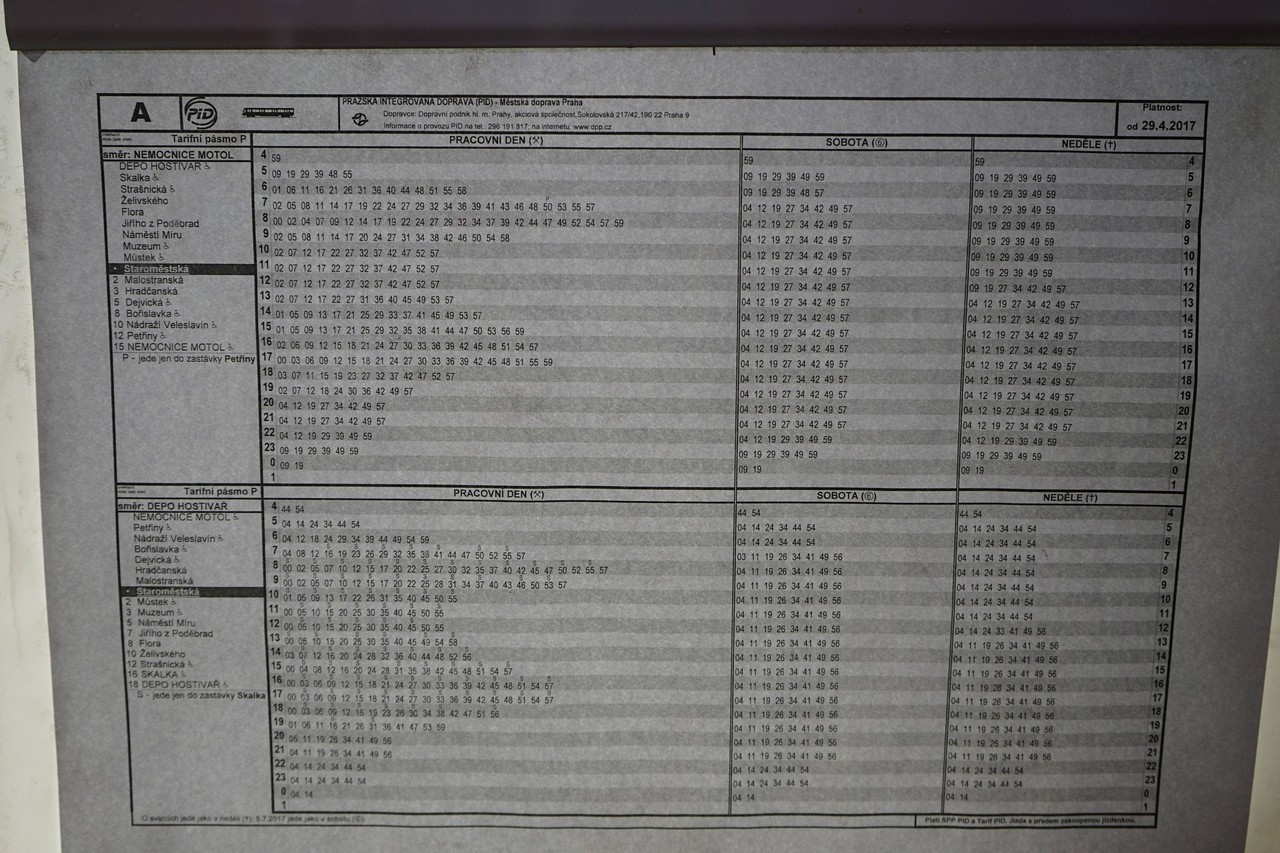 A
PiD
PRAŽSKÁ INTEGROVANÁ DOPRAVA (PID) - Městská doprava Praha
Dopravce: Dopravní podnik hl. m. Prahy, akciová společnost, Sokolovská 217/42, 190 22 Praha 9
Informace o provozu PID na tel.: 296 191 817; na internetu: www.dpp.cz
Platnost:
od 29.4.2017
Tarifní pásmo P
PRACOVNÍ DEN (⚒) SOBOTA (⑥) NEDĚLE (†)
směr: NEMOCNICE MOTOL
DEPO HOSTIVAŘ
Skalka
Strašnická
Želivského
Flora
Jiřího z Poděbrad
Náměstí Míru
Muzeum
Můstek
• Staroměstská
2 Malostranská
3 Hradčanská
5 Dejvická
8 Bořislavka
10 Nádraží Veleslavín
12 Petřiny
15 NEMOCNICE MOTOL
P - jede jen do zastávky Petřiny
4 59 59 59 4
5 09 19 29 39 48 55 09 19 29 39 49 59 09 19 29 39 49 59 5
6 01 06 11 16 21 26 31 36 40 44 48 51 55 58 09 19 29 39 48 57 09 19 29 39 49 59 6
P
7 02 05 08 11 14 17 19 22 24 27 29 32 34 36 39 41 43 46 48 50 53 55 57 04 12 19 27 34 42 49 57 09 19 29 39 49 59 7
8 00 02 04 07 09 12 14 17 19 22 24 27 29 32 34 37 39 42 44 47 49 52 54 57 59 04 12 19 27 34 42 49 57 09 19 29 39 49 59 8
9 02 05 08 11 14 17 20 24 27 31 34 38 42 46 50 54 58 04 12 19 27 34 42 49 57 09 19 29 39 49 59 9
10 02 07 12 17 22 27 32 37 42 47 52 57 04 12 19 27 34 42 49 57 09 19 29 39 49 59 10
11 02 07 12 17 22 27 32 37 42 47 52 57 04 12 19 27 34 42 49 57 09 19 29 39 49 59 11
12 02 07 12 17 22 27 32 37 42 47 52 57 04 12 19 27 34 42 49 57 09 19 27 34 42 49 57 12
13 02 07 12 17 22 27 31 36 40 45 49 53 57 04 12 19 27 34 42 49 57 04 12 19 27 34 42 49 57 13
14 01 05 09 13 17 21 25 29 33 37 41 45 49 53 57 04 12 19 27 34 42 49 57 04 12 19 27 34 42 49 57 14
15 01 05 09 13 17 21 25 29 32 35 38 41 44 47 50 53 56 59 04 12 19 27 34 42 49 57 04 12 19 27 34 42 49 57 15
16 02 06 09 12 15 18 21 24 27 30 33 36 39 42 45 48 51 54 57 04 12 19 27 34 42 49 57 04 12 19 27 34 42 49 57 16
17 00 03 06 09 12 15 18 21 24 27 30 33 36 39 42 45 48 51 55 59 04 12 19 27 34 42 49 57 04 12 19 27 34 42 49 57 17
18 03 07 11 15 19 23 27 32 37 42 47 52 57 04 12 19 27 34 42 49 57 04 12 19 27 34 42 49 57 18
19 02 07 12 18 24 30 36 42 49 57 04 12 19 27 34 42 49 57 04 12 19 27 34 42 49 57 19
20 04 12 19 27 34 42 49 57 04 12 19 27 34 42 49 57 04 12 19 27 34 42 49 57 20
21 04 12 19 27 34 42 49 57 04 12 19 27 34 42 49 57 04 12 19 27 34 42 49 57 21
22 04 12 19 29 39 49 59 04 12 19 29 39 49 59 04 12 19 29 39 49 59 22
23 09 19 29 39 49 59 09 19 29 39 49 59 09 19 29 39 49 59 23
0 09 19 09 19 09 19 0
1 1
Tarifní pásmo P
PRACOVNÍ DEN (⚒) SOBOTA (⑥) NEDĚLE (†)
směr: DEPO HOSTIVAŘ
NEMOCNICE MOTOL
Petřiny
Nádraží Veleslavín
Bořislavka
Dejvická
Hradčanská
Malostranská
• Staroměstská
2 Můstek
3 Muzeum
5 Náměstí Míru
7 Jiřího z Poděbrad
8 Flora
10 Želivského
12 Strašnická
16 SKALKA
18 DEPO HOSTIVAŘ
S - jede jen do zastávky Skalka
4 44 54 44 54 44 54 4
5 04 14 24 34 44 54 04 14 24 34 44 54 04 14 24 34 44 54 5
6 04 12 18 24 29 34 39 44 49 54 59 04 14 24 34 44 54 04 14 24 34 44 54 6
7 04 08 12 16 19 23 26 29 32 35 38 41 44 47 50 52 55 57 03 11 19 26 34 41 49 56 04 14 24 34 44 54 7
8 00 02 05 07 10 12 15 17 20 22 25 27 30 32 35 37 40 42 45 47 50 52 55 57 04 11 19 26 34 41 49 56 04 14 24 34 44 54 8
9 00 02 05 07 10 12 15 17 20 22 25 28 31 34 37 40 43 46 50 53 57 04 11 19 26 34 41 49 56 04 14 24 34 44 54 9
10 01 05 09 13 17 22 26 31 35 40 45 50 55 04 11 19 26 34 41 49 56 04 14 24 34 44 54 10
11 00 05 10 15 20 25 30 35 40 45 50 55 04 11 19 26 34 41 49 56 04 14 24 34 44 54 11
12 00 05 10 15 20 25 30 35 40 45 50 55 04 11 19 26 34 41 49 56 04 14 24 33 41 49 56 12
13 00 05 10 15 20 25 30 35 40 45 49 54 58 04 11 19 26 34 41 49 56 04 11 19 26 34 41 49 56 13
14 03 07 12 16 20 24 28 32 36 40 44 48 52 56 04 11 19 26 34 41 49 56 04 11 19 26 34 41 49 56 14
15 00 04 08 12 16 20 24 28 31 35 38 42 45 48 51 54 57 04 11 19 26 34 41 49 56 04 11 19 26 34 41 49 56 15
16 00 03 06 09 12 15 18 21 24 27 30 33 36 39 42 45 48 51 54 57 04 11 19 26 34 41 49 56 04 11 19 26 34 41 49 56 16
17 00 03 06 09 12 15 18 21 24 27 30 33 36 39 42 45 48 51 54 57 04 11 19 26 34 41 49 56 04 11 19 26 34 41 49 56 17
18 00 03 06 09 12 16 19 23 26 30 34 38 42 47 51 56 04 11 19 26 34 41 49 56 04 11 19 26 34 41 49 56 18
19 01 06 11 16 21 26 31 36 41 47 53 59 04 11 19 26 34 41 49 56 04 11 19 26 34 41 49 56 19
20 05 11 19 26 34 41 49 56 04 11 19 26 34 41 49 56 04 11 19 26 34 41 49 56 20
21 04 11 19 26 34 41 49 56 04 11 19 26 34 41 49 56 04 11 19 26 34 41 49 56 21
22 04 14 24 34 44 54 04 14 24 34 44 54 04 14 24 34 44 54 22
23 04 14 24 34 44 54 04 14 24 34 44 54 04 14 24 34 44 54 23
0 04 14 04 14 04 14 0
1 1
O svátcích jede jako v neděli (†); 5.7.2017 jede jako v sobotu (⑥).
Platí SPP PID a Tarif PID. Jízda s předem zakoupenou jízdenkou.